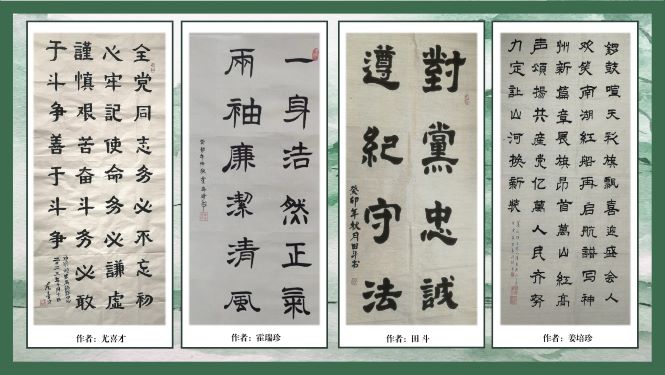 全党同志务必不忘初
心牢記使命务必謙虚
謹慎艰苦奋斗务必敢
于斗争善于斗争
作者：尤喜才
一身浩然正氣
兩袖廉潔清風
作者：霍瑞珍
對黨忠誠
遵紀守法
癸卯年秋月田斗书
作者：田 斗
锣鼓喧天彩旗飄喜迎盛会人
欢笑南湖紅船再启航譜写神
州新篇章展旗昂首萬山紅高
声頌揚共産党亿萬人民齐努
力定让山河换新装
作者：姜培珍